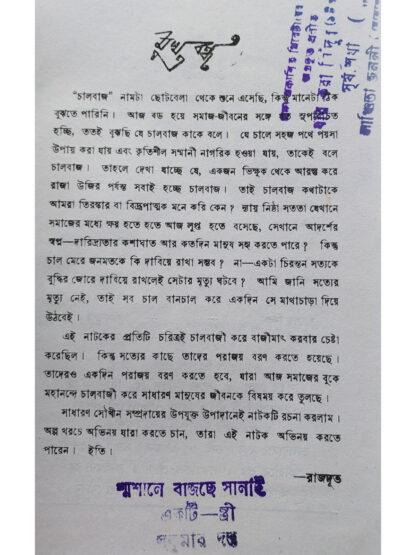 মুখ বন্ধ
"চালবাজ" নামটা ছোটবেলা থেকে শুনে এসেছি, কিন্তু মানেটা ঠিক
বুঝতে পারিনি। আজ বড় হয়ে সমাজ-জীবনের সঙ্গে যত সুপরিচিত
হচ্ছি, ততই বুঝছি যে চালবাজ কাকে বলে। যে চালে সহজ পথে পয়সা
উপায় করা যায় এবং কৃতিশীল সম্মানী নাগরিক হওয়া যায়, তাকেই বলে
চালবাজ। তাহলে দেখা যাচ্ছে যে, একজন ভিক্ষুক থেকে আরম্ভ করে
রাজা উজির পর্যন্ত সবাই হচ্ছে চালবাজ। তাই চালবাজ কথাটাকে
আমরা তিরস্কার বা বিদ্রূপাত্মক মনে করি কেন? ন্যায় নিষ্ঠা সততা যেখানে
সমাজের মধ্যে ক্ষয় হতে হতে আজ লুপ্ত হতে বসেছে, সেখানে আদর্শের
স্বপ্ন—দারিদ্রতার কশাঘাত আর কতদিন মানুষ সহ্য করতে পারে? কিন্তু
চাল মেরে জনমতকে কি দাবিয়ে রাখা সম্ভব? না—একটা চিরন্তন সত্যকে
বুদ্ধির জোরে দাবিয়ে রাখলেই সেটার মৃত্যু ঘটবে? আমি জানি সত্যের
মৃত্যু নেই, তাই সব চাল বানচাল করে একদিন সে মাথাচাড়া দিয়ে
উঠবেই।
এই নাটকের প্রতিটি চরিত্রই চালবাজী করে বাজীমাৎ করবার চেষ্টা
করেছিল। কিন্তু সত্যের কাছে তাদের পরাজয় বরণ করতে হয়েছে।
তাদেরও একদিন পরাজয় বরণ করতে হবে, যারা আজ সমাজের বুকে
মহানন্দে চালবাজী করে সাধারণ মানুষের জীবনকে বিষময় করে তুলছে।
সাধারণ সৌখীন সম্প্রদায়ের উপযুক্ত উপাদানেই নাটকটি রচনা করলাম।
অল্প খরচে অভিনয় যারা করতে চান, তারা এই নাটক অভিনয় করতে
পারেন। ইতি।
—রাজদূত
শ্মশানে বাজছে সানাই
একটি—স্ত্রী